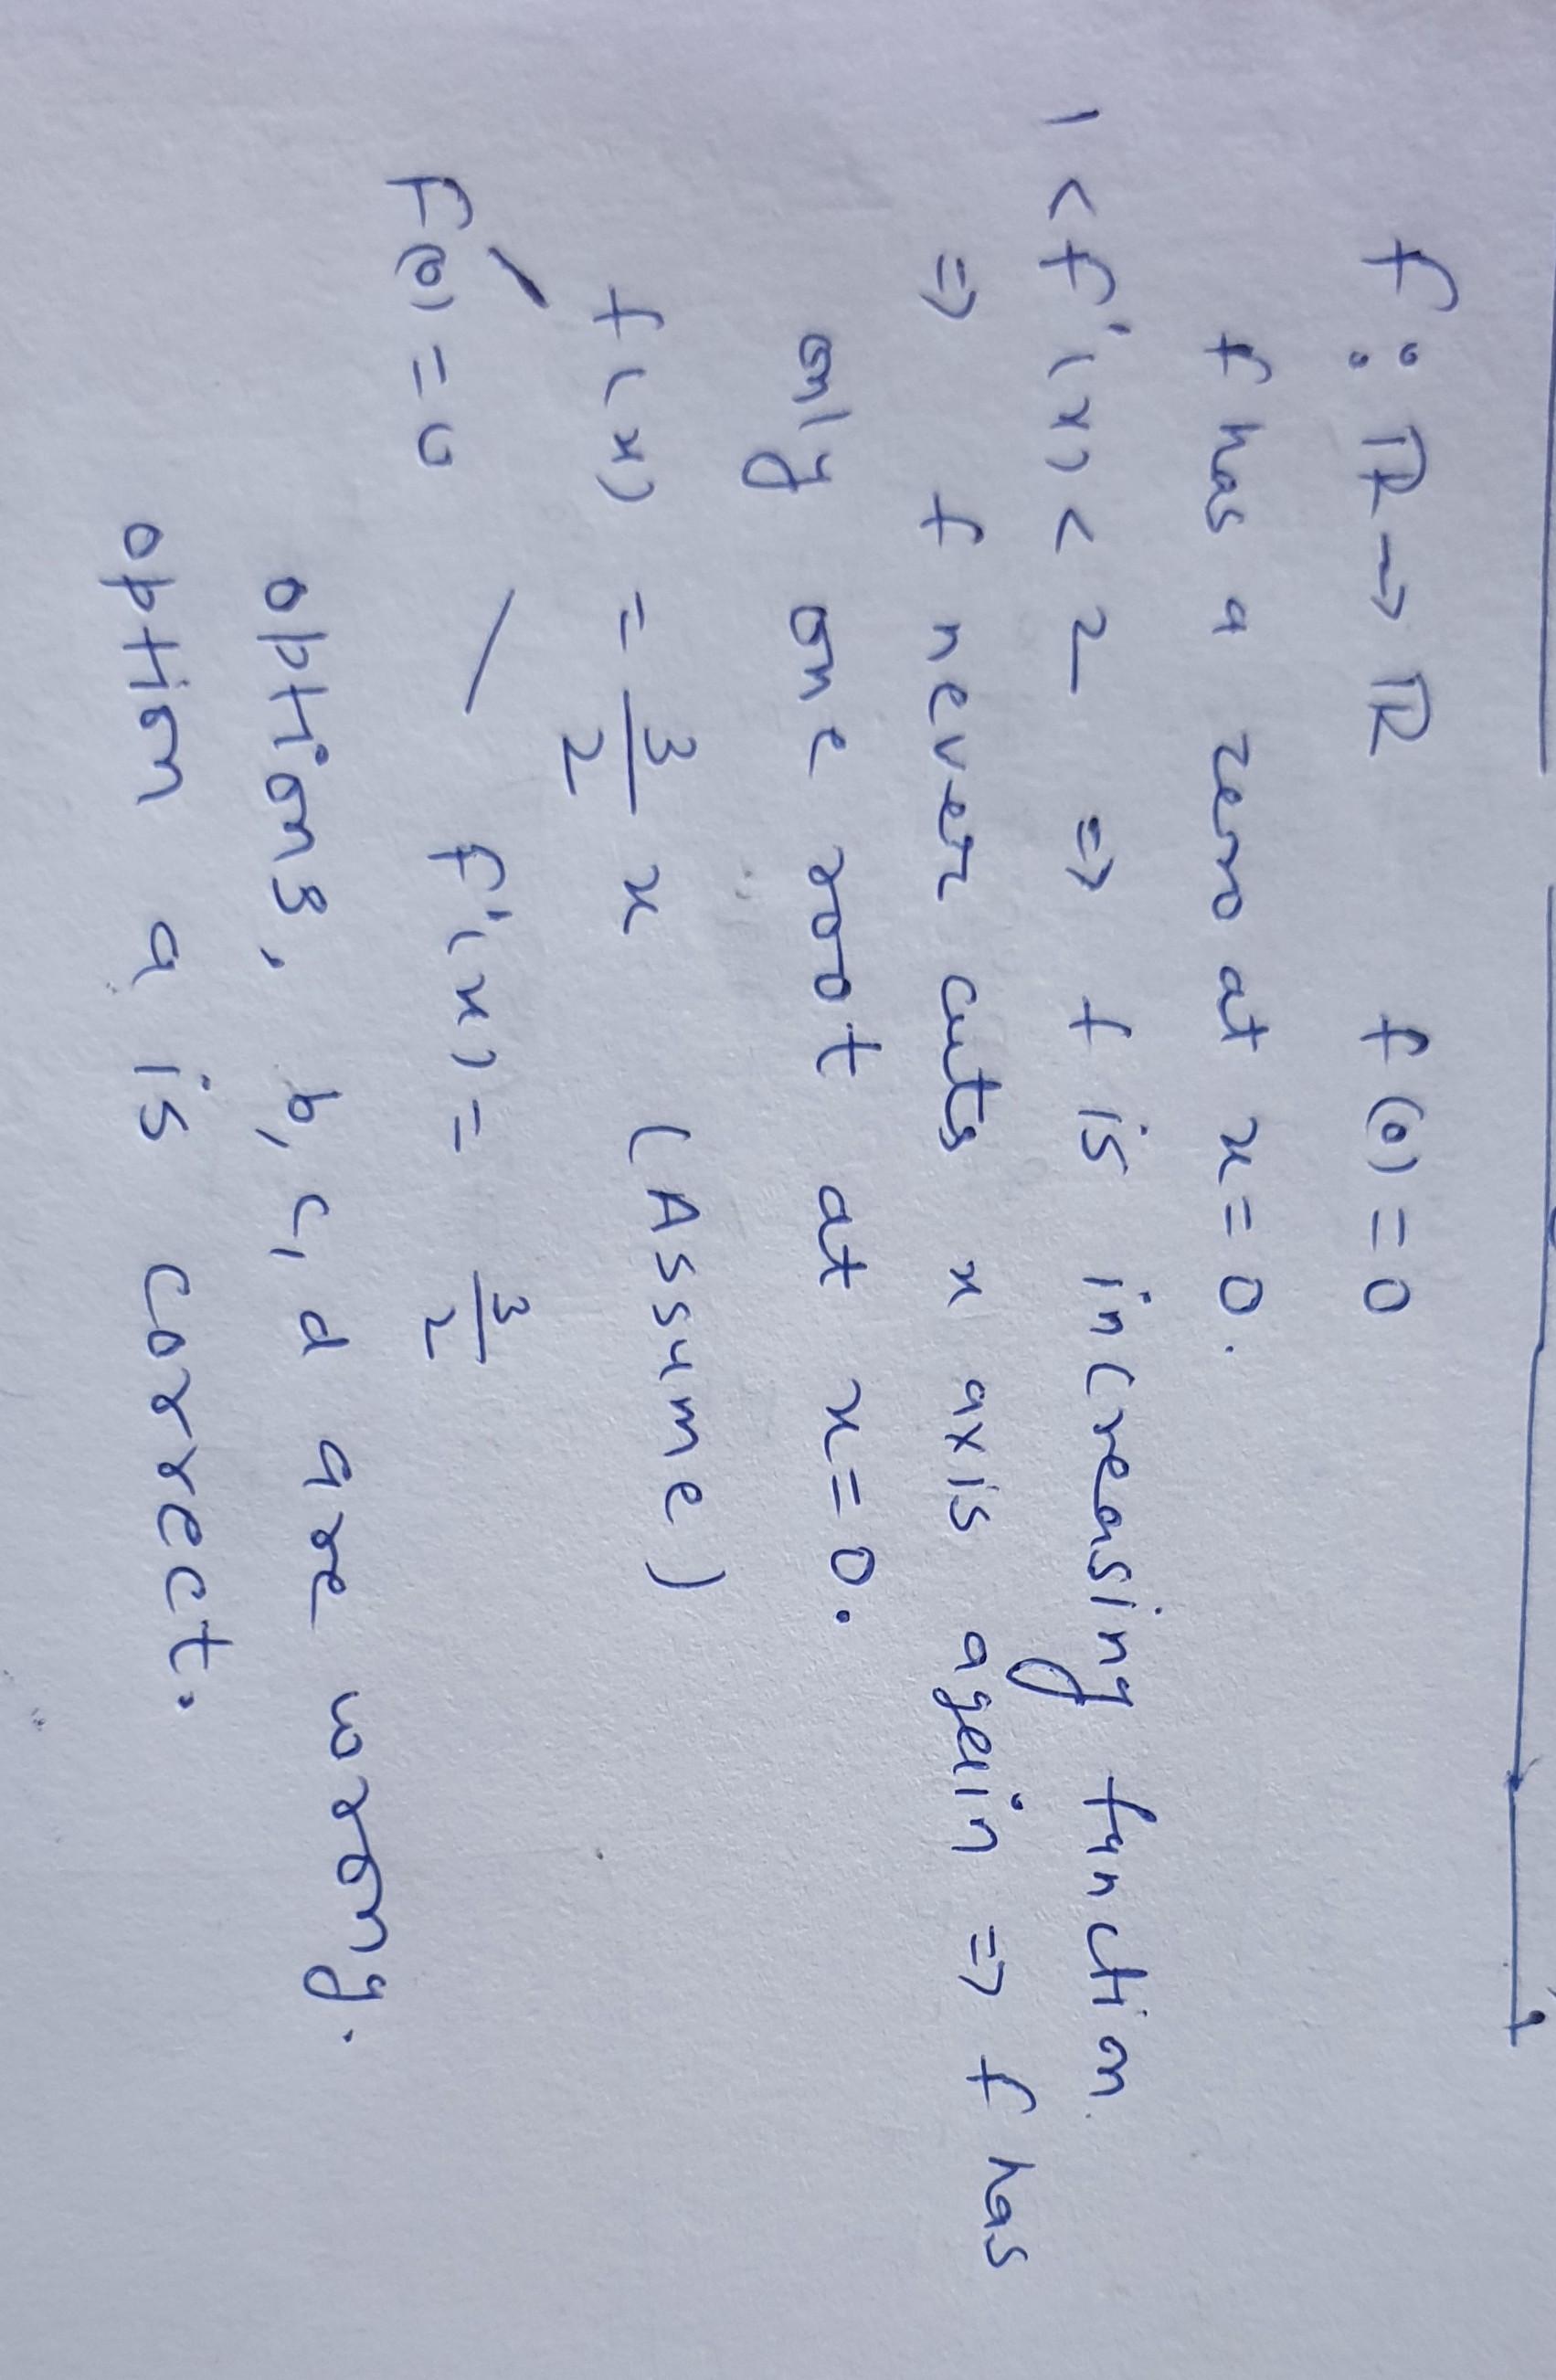 f : ℝ → ℝ f(0) = 0
f has a zero at x = 0.
1 < f'(x) < 2 ⇒ f is increasing function
⇒ f never cuts x axis again ⇒ f has
only one root at x = 0.
f(x) = 3/2 x (Assume)
F(0) = 0 f'(x) = 3/2
options, b, c, d are wrong.
option a is correct.